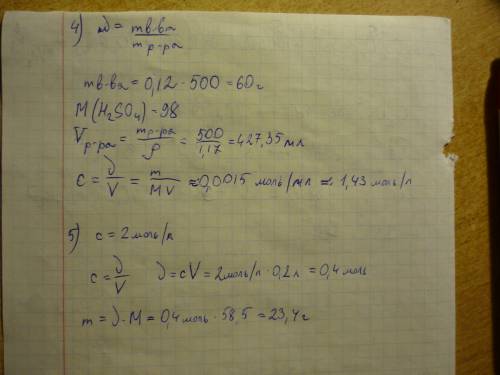 4) ω = mв-ва / mр-ра
mв-ва = 0,12 · 500 = 60 г
M(H₂SO₄) = 98
Vр-ра = mр-ра / ρ = 500 / 1,17 = 427,35 мл
c = ν / V = m / MV ≈ 0,0015 моль/мл ≈ 1,43 моль/л
5) c = 2 моль/л
c = ν / V ν = cV = 2 моль/л · 0,2 л = 0,4 моль
m = ν · M = 0,4 моль · 58,5 = 23,4 г